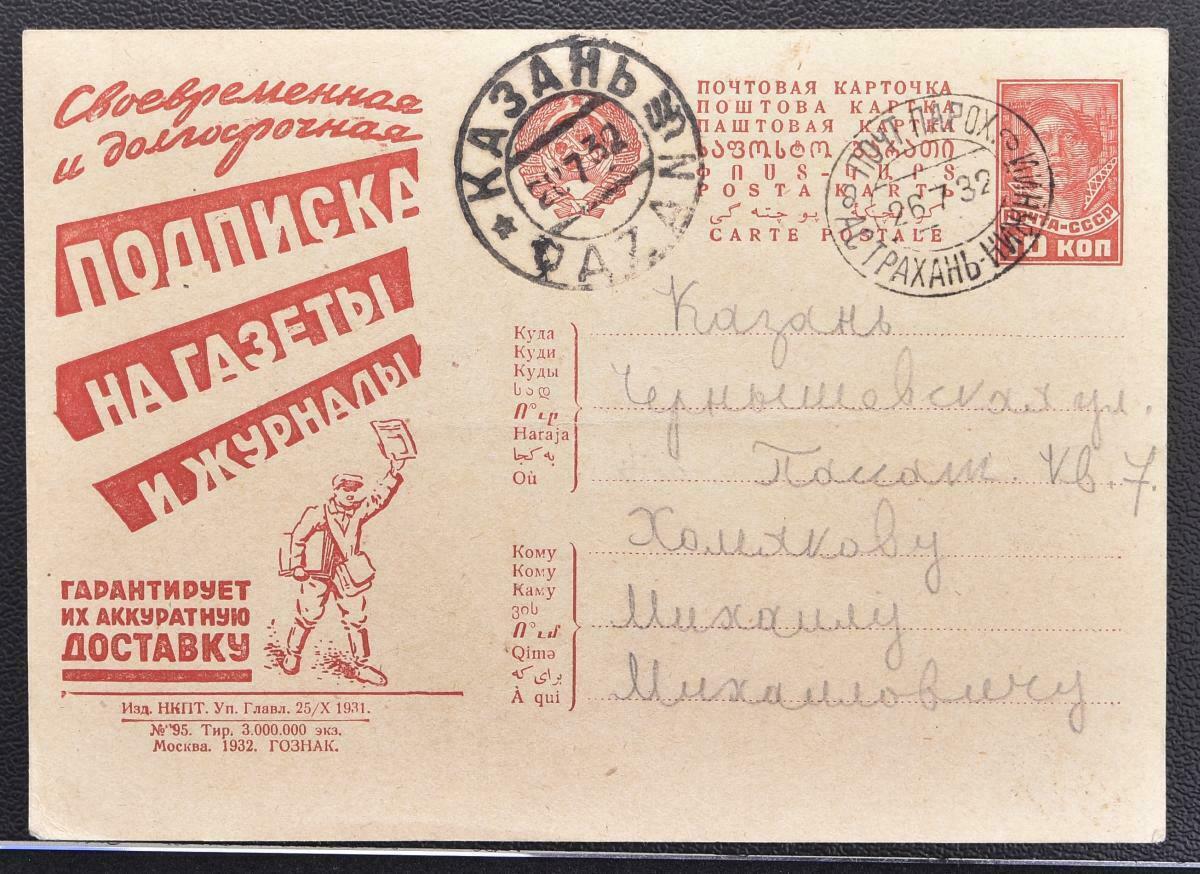 Своевременная
и долгосрочная
ПОДПИСКА
НА ГАЗЕТЫ
И ЖУРНАЛЫ
ГАРАНТИРУЕТ
ИХ АККУРАТНУЮ
ДОСТАВКУ
Изд. НКПТ. Уп. Главл. 25/X 1931.
№ 95. Тир. 3.000.000 экз.
Москва. 1932. ГОЗНАК.
КАЗАНЬ
7 32
QAZAN
ПОЧТОВАЯ КАРТОЧКА
ПОШТОВА КАРТКА
ПАШТОВАЯ КАРТКА
CARTE POSTALE
ПОЧТ. ПАРОХ.
26 7 32
АСТРАХАНЬ-НИЖНИЙ
ПОЧТА-СССР
10 КОП
Куда
Куди
Куды
სად
Ո՞ւր
Haraja
به كجا
Où
Казань
Чернышевская ул.
Пассаж. Кв. 7.
Кому
Кому
Каму
ვის
Ո՞ւմ
Qimə
برای که
À qui
Хомякову
Михаилу
Михаиловичу